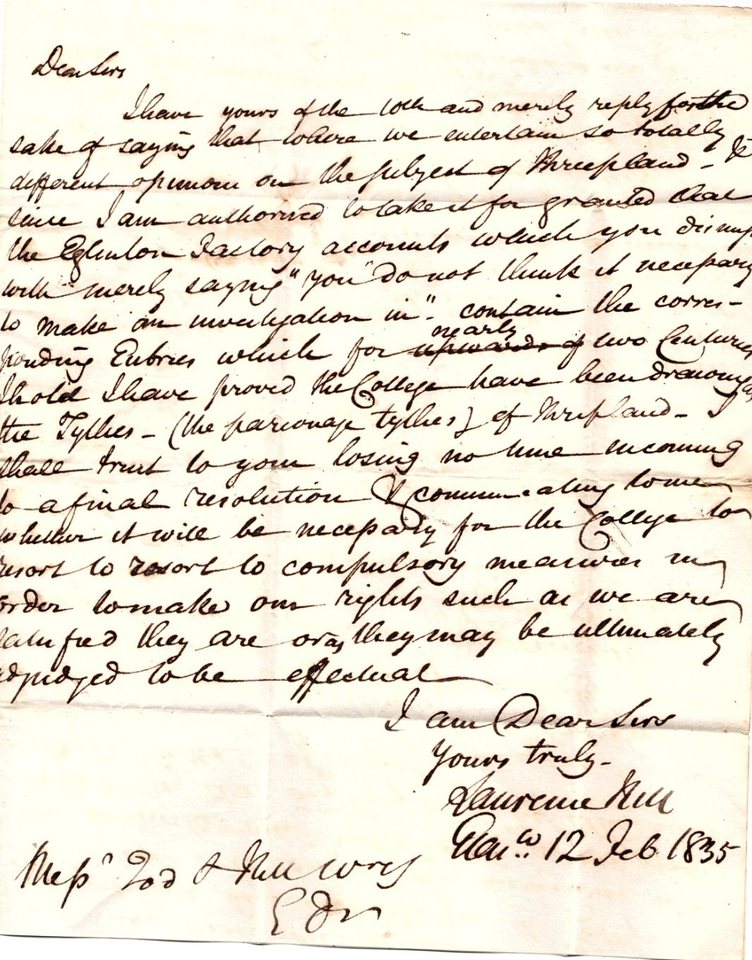 Dear Sirs
I have yours of the 10th and merely reply for the
sake of saying that where we entertain so totally
different opinions on the subject of Threepland - &
since I am authorised to take it for granted that
the Eglinton Factory accounts which you dismiss
with merely saying "you" do not think it necessary
to make an investigation in". contain the corres-
ponding Entries which for upwards of nearly two Centuries
I hold I have proved the College have been drawing
the Tythes - (the parsonage tythes) of Threpland - I
shall trust to your losing no time in coming
to a final resolution & communicating to me
whether it will be necessary for the College to
resort to resort to compulsory measures in
order to make our rights such as we are
satisfied they are or as they may be ultimately
adjudged to be effectual
I am Dear Sirs
Yours truly -
Laurence Hill
Glasw. 12 Feb 1835
Messrs Tod & Hill WRS
Edr